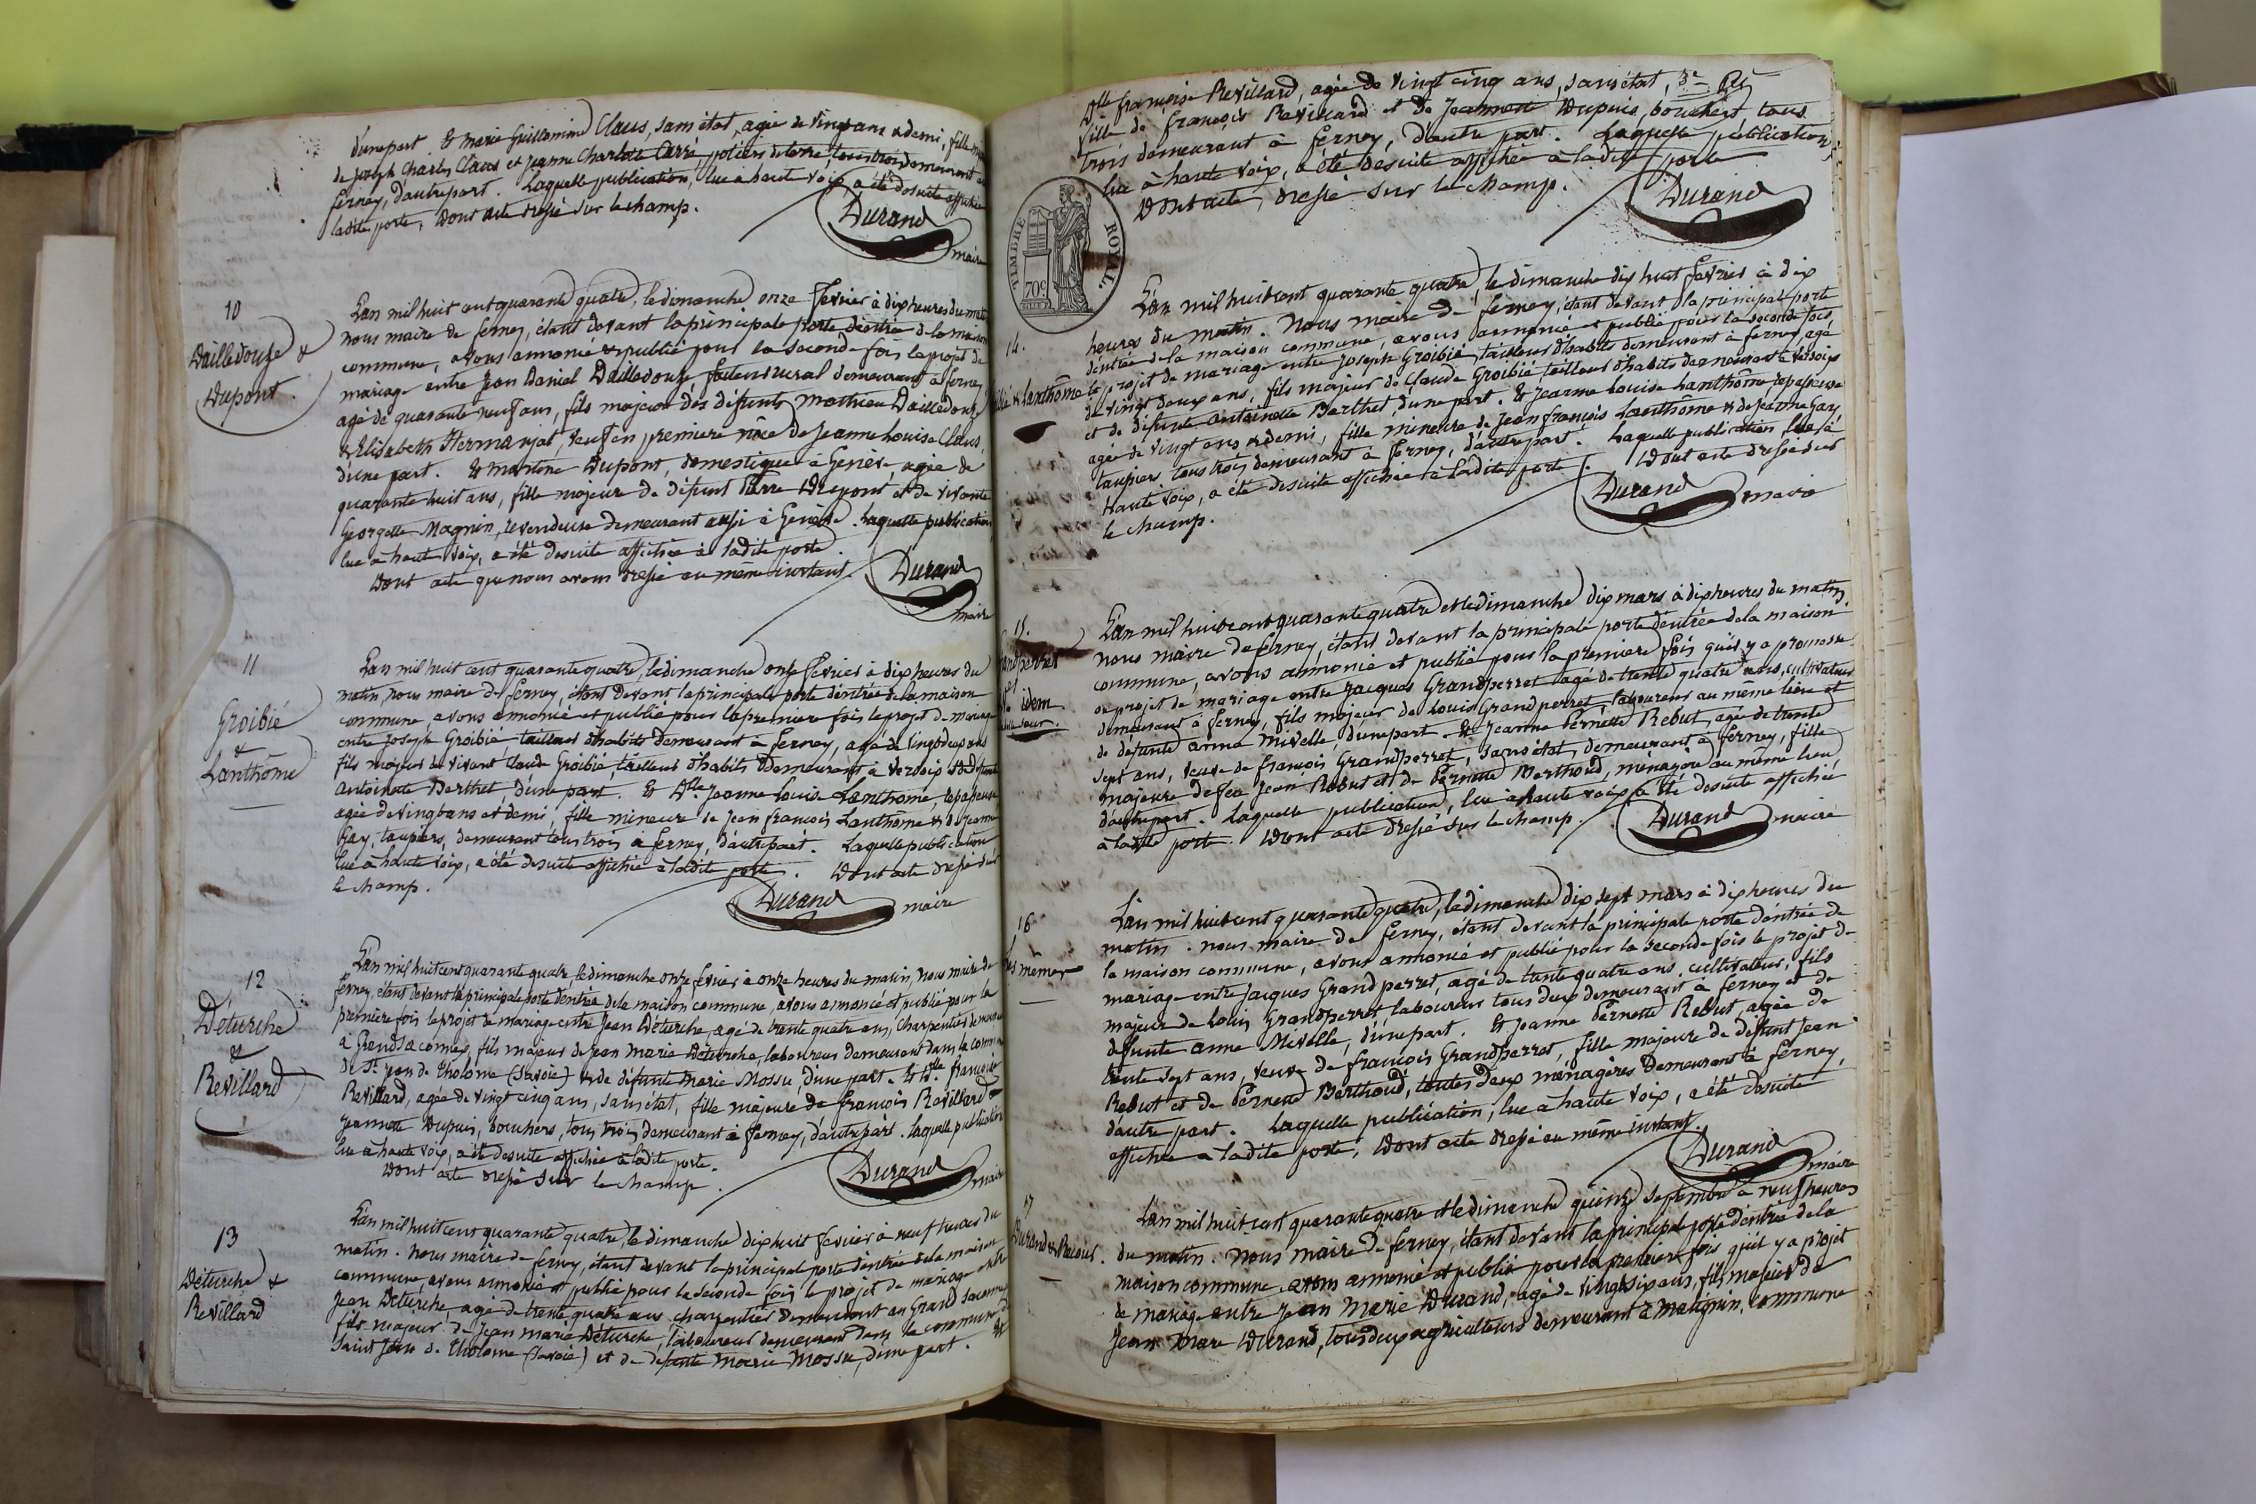 d'une part. Et Marie Guillemine Claus, sans état, agée de vingt ans & demi, fille
de Joseph Charles Claus et Jeanne Charlotte Carré potiers de terre tous trois demeurant à
ferney, d'autre part. Laquelle publication, lue à haute voix a été desuite affichée
ladite porte, Dont acte dressé sur le champ.
Durand
maire
10
Dailledouze &
Dupont.
L'an mil huit cent quarante quatre, le dimanche onze fevrier à dix heures du matin
nous maire de ferney, étant devant la principale porte d'entrée de la maison
commune, avons annoncé & publié pour la seconde fois le projet de
mariage entre Jean Daniel Dailledouze, facteur rural demeurant à ferney
agé de quarante neuf ans, fils majeur des défunts Mathieu Dailledouze
& Elisabeth Hermanjat, veuf en première nôce de Jeanne Louise Claus,
d'une part. Et Martine Dupont, domestique à Genève agée de
quarante huit ans, fille majeure de défunt Pierre Dupont et de vivante
Georgette Magnin, revendeuse demeurant aussi à Genève. Laquelle publication
lue à haute voix, a été desuite affichée à ladite porte.
Dont acte que nous avons dressé au même instant.
Durand
maire
11
Groibié
&
Lanthôme
L'an mil huit cent quarante quatre, le dimanche onze fevrier à dix heures du
matin, nous maire de ferney, étant devant la principale porte d'entrée de la maison
commune, avons annoncé et publié pour la première fois le projet de mariage
entre Joseph Groibié, tailleur d'habits demeurant à ferney, agé de vingt deux ans
fils majeur de vivant Claude Groibié, tailleur d'habits demeurant à versoix & de défunte
antoinette Berthet, d'une part. Et Dlle Jeanne Louise Lanthôme, repasseuse
agée de vingt ans et demi, fille mineure de Jean francois Lanthôme & de Jeanne
Gay, taupiers, demeurant tous trois à ferney, d'autre part. Laquelle publication
lue à haute voix, a été desuite affichée à ladite porte. Dont acte dressé sur
le champ.
Durand
maire
12
Déturche
&
Revillard
L'an mil huit cent quarante quatre le dimanche onze fevrier à onze heures du matin, Nous maire de
ferney, étant devant la principale porte d'entrée de la maison commune, avons annoncé et publié pour la
première fois le projet de mariage entre Jean Déturche, agé de trente quatre ans, charpentier demeurant
à Grand Saconnex, fils majeur de Jean Marie Déturche, laboureur demeurant dans la commune
de St Jean de Tholome (Savoie) & de défunte Marie Mossu d'une part. Et Dlle françoise
Revillard, agée de vingt cinq ans, sans état, fille majeure de francois Revillard &
Jeannette Dupuis, bouchers, tous trois demeurant à ferney, d'autre part. Laquelle publication
lue à haute voix, a été desuite affichée à ladite porte.
Dont acte dressé sur le champ.
Durand
maire
13
Déturche &
Revillard
L'an mil huit cent quarante quatre, le dimanche dix huit fevrier à neuf heures du
matin. Nous maire de ferney, étant devant la principale porte d'entrée de la maison
commune, avons annoncé et publié pour la seconde fois le projet de mariage entre
Jean Déturche, agé de trente quatre ans charpentier demeurant au Grand Saconnex
fils majeur de Jean marie Déturche, laboureur demeurant dans la commune de
Saint Jean de Tholome (Savoie) et de defunte Marie Mossu, d'une part. Et
Dlle françoise Revillard, agée de vingt cinq ans, sans état,
fille de françois Revillard et de Jeannette Dupuis, bouchers tous
trois demeurant à ferney, d'autre part. Laquelle publication
lue à haute voix, a été desuite affichée à ladite porte
Dont acte, dressé sur le champ.
Durand
TIMBRE ROYAL
70c
14.
& Lanthôme
L'an mil huit cent quarante quatre, le dimanche dix huit fevrier à dix
heures du matin. Nous maire de ferney, étant devant la principale porte
d'entrée de la maison commune, avons annoncé et publié pour la seconde fois
le projet de mariage entre Joseph Groibié, tailleur d'habits demeurant à ferney, agé
de vingt deux ans, fils majeur de Claude Groibié, tailleur d'habits demeurant à versoix
et de défunte antoinette Berthet, d'une part. Et Jeanne Louise Lanthôme repasseuse
agée de vingt ans & demi, fille mineure de Jean françois Lanthôme & de Jeanne Gay,
taupiers, tous trois demeurant à ferney, d'autre part. Laquelle publication lue à
haute voix, a été desuite affichée à ladite porte. Dont acte dressé sur
le champ.
Durand
maire
15.
Grandperret
et
idem
L'an mil huit cent quarante quatre et le dimanche dix mars, à dix heures du matin,
nous maire de ferney, étant devant la principale porte d'entrée de la maison
commune, avons annoncé et publié pour la première fois qu'il y a promesse
ou projet de mariage entre Jacques Grandperret agé de trente quatre ans, cultivateur
demeurant à ferney, fils majeur de Louis Grandperret, laboureur au même lieu et
de défunte anne Mivelle, d'une part. Et Jeanne Pernette Rebut, agée de trente
sept ans, veuve de francois Grandperret, sans état, demeurant à ferney, fille
majeure de feu Jean Rebut et de Pernette Berthoud, ménagère au même lieu
d'autre part. Laquelle publication, lue à haute voix, a été desuite affichée
à ladite porte. Dont acte dressé sur le champ.
Durand
maire
16
Les mêmes
L'an mil huit cent quarante quatre, le dimanche dix sept mars à dix heures du
matin. nous maire de ferney, étant devant la principale porte d'entrée de
la maison commune, avons annoncé et publié pour la seconde fois le projet de
mariage entre Jacques Grand perret, agé de trente quatre ans cultivateur, fils
majeur de Louis Grandperret laboureur tous deux demeurant à ferney et de
defunte anne Mivelle, d'une part. Et Jeanne Pernette Rebut, agée de
trente sept ans, veuve de francois Grandperret, fille majeure de défunt Jean
Rebut et de Pernette Berthoud, toutes deux ménagères demeurant à ferney,
d'autre part. Laquelle publication, lue à haute voix, a été desuite
affichée à ladite porte, Dont acte dressé au même instant.
Durand
maire
17
Durand &
L'an mil huit cent quarante quatre et le dimanche quinze septembre à neuf heures
du matin. Nous maire de ferney, étant devant la principale porte d'entrée de la
maison commune avons annoncé et publié pour la première fois qu'il y a projet
de mariage entre Jean Marie Durand, agé de vingt six ans, fils majeur de
Jean Marc Durand, tous deux agriculteurs demeurant à Matignin, commune